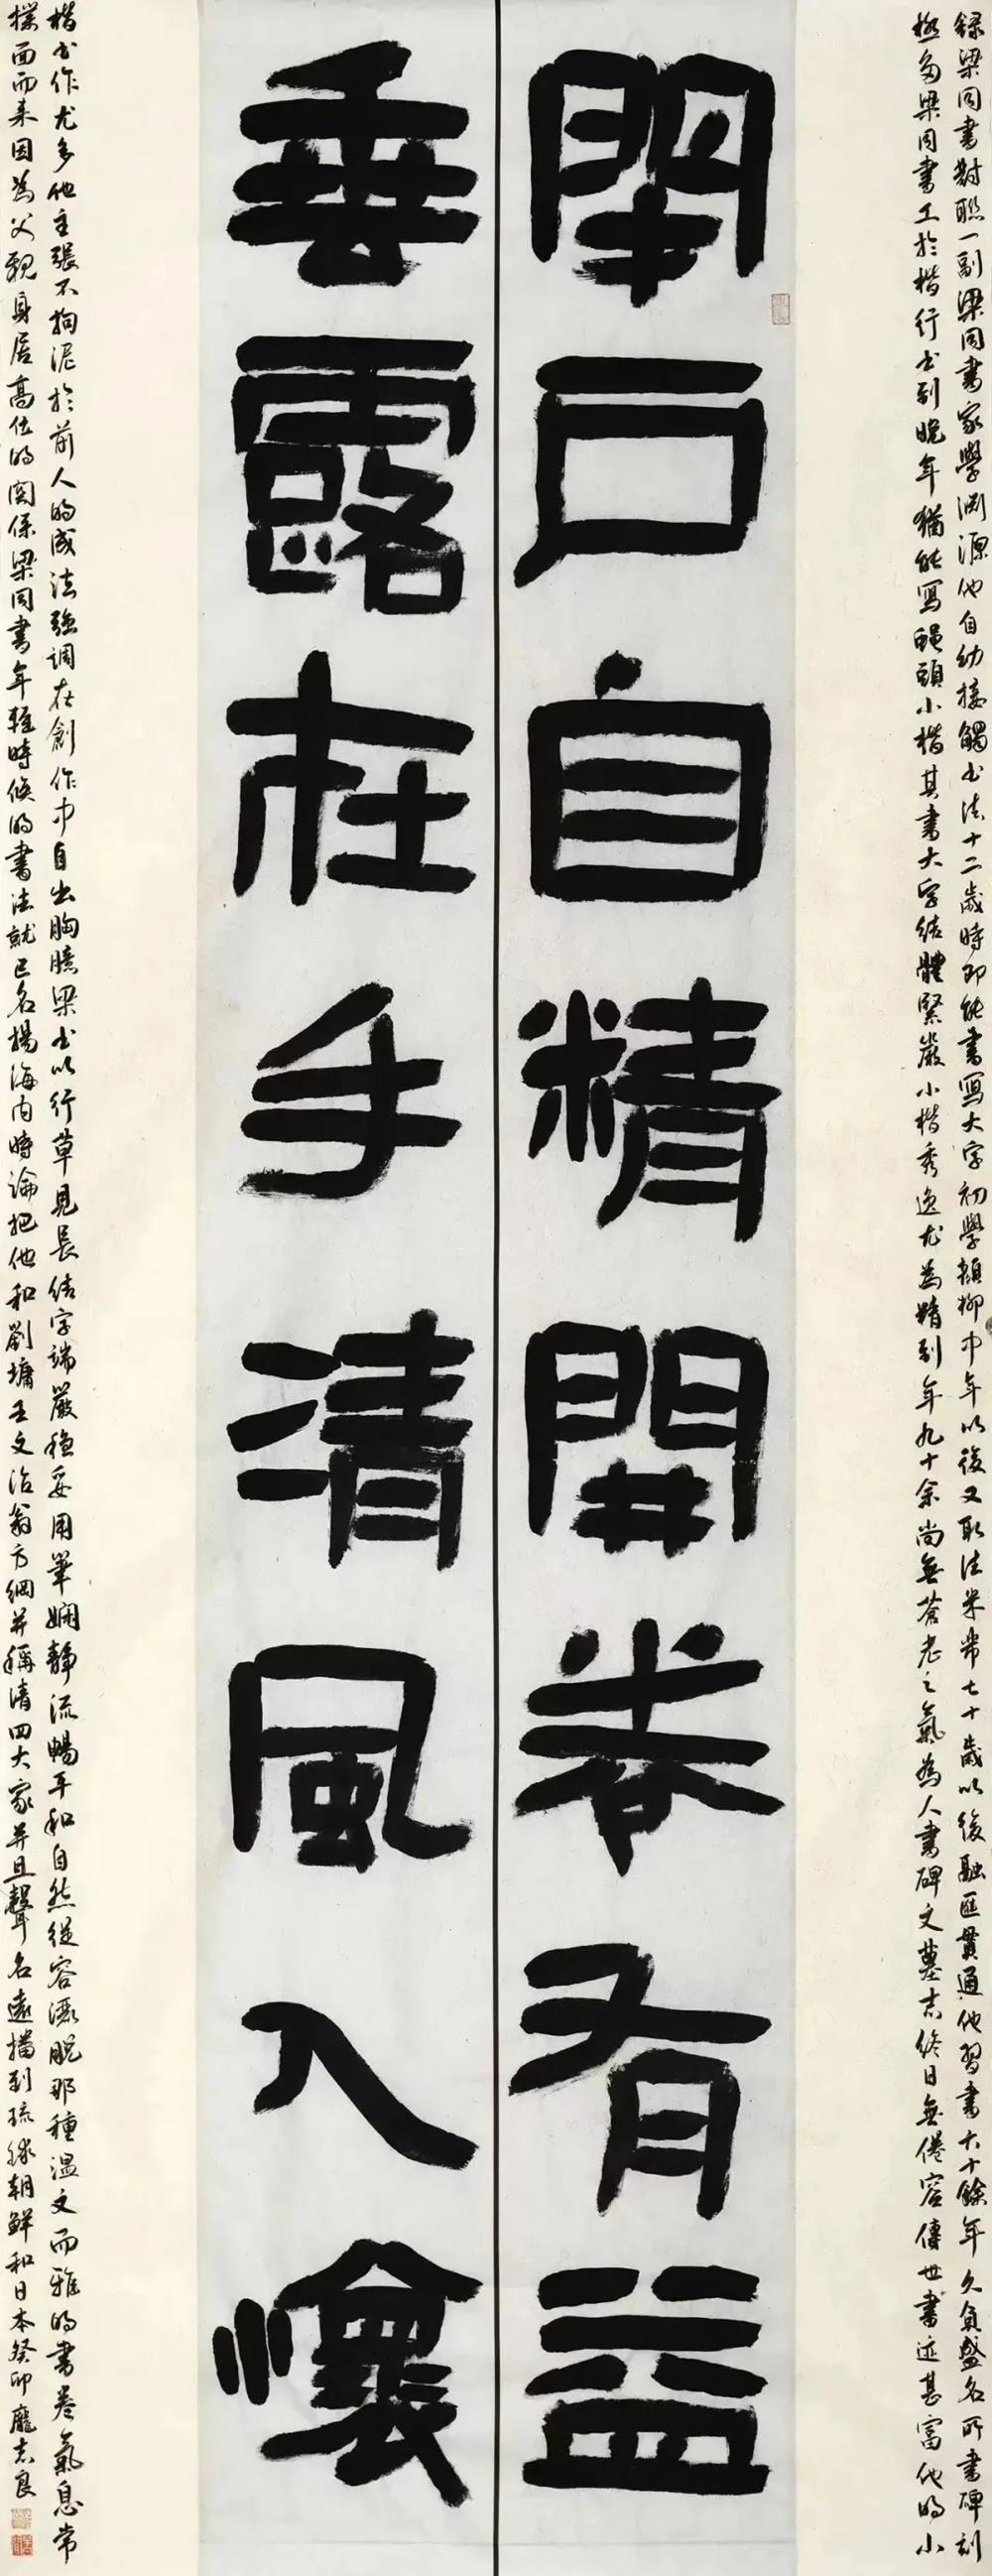 錄梁同書對聯一副梁同書家學淵源他自幼接觸书法十二歲時即能書寫大字初學顏柳中年以後又取法米芾七十歲以後融匯貫通他習書六十餘年久負盛名所書碑刻
極多梁同書工於楷行书到晚年猶能寫蠅頭小楷其書大字結體緊嚴小楷秀逸尤為精到年九十余尚無蒼老之氣為人書碑文墓志終日無倦容傳世書迹甚富他的小
閉戶自精開卷有益
垂露在手清風入懷
楷书作尤多他主張不拘泥於前人的成法強調在創作中自出胸臆梁书以行草見長結字端嚴穩妥用筆嫻靜流暢平和自然從容灑脫那種溫文而雅的書卷氣息常
撲面而来因為父親身居高位的関係梁同書年輕時候的書法就已名揚海内時論把他和劉墉王文治翁方綱并稱清四大家并且聲名遠播到琉球朝鮮和日本癸卯龐志良